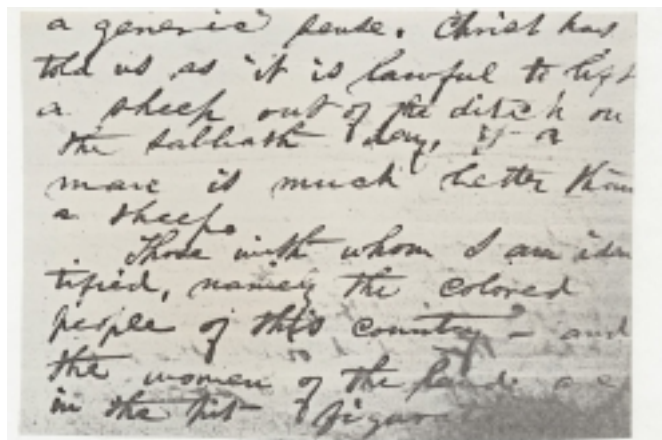 a generic sense. Christ has
told us as "it is lawful to lift
a sheep out of the ditch on
the sabbath day, if a
man is much better than
a sheep.
Those with whom I am iden
tified, namely the colored
people of this country — and
the women of the land are
in the pit